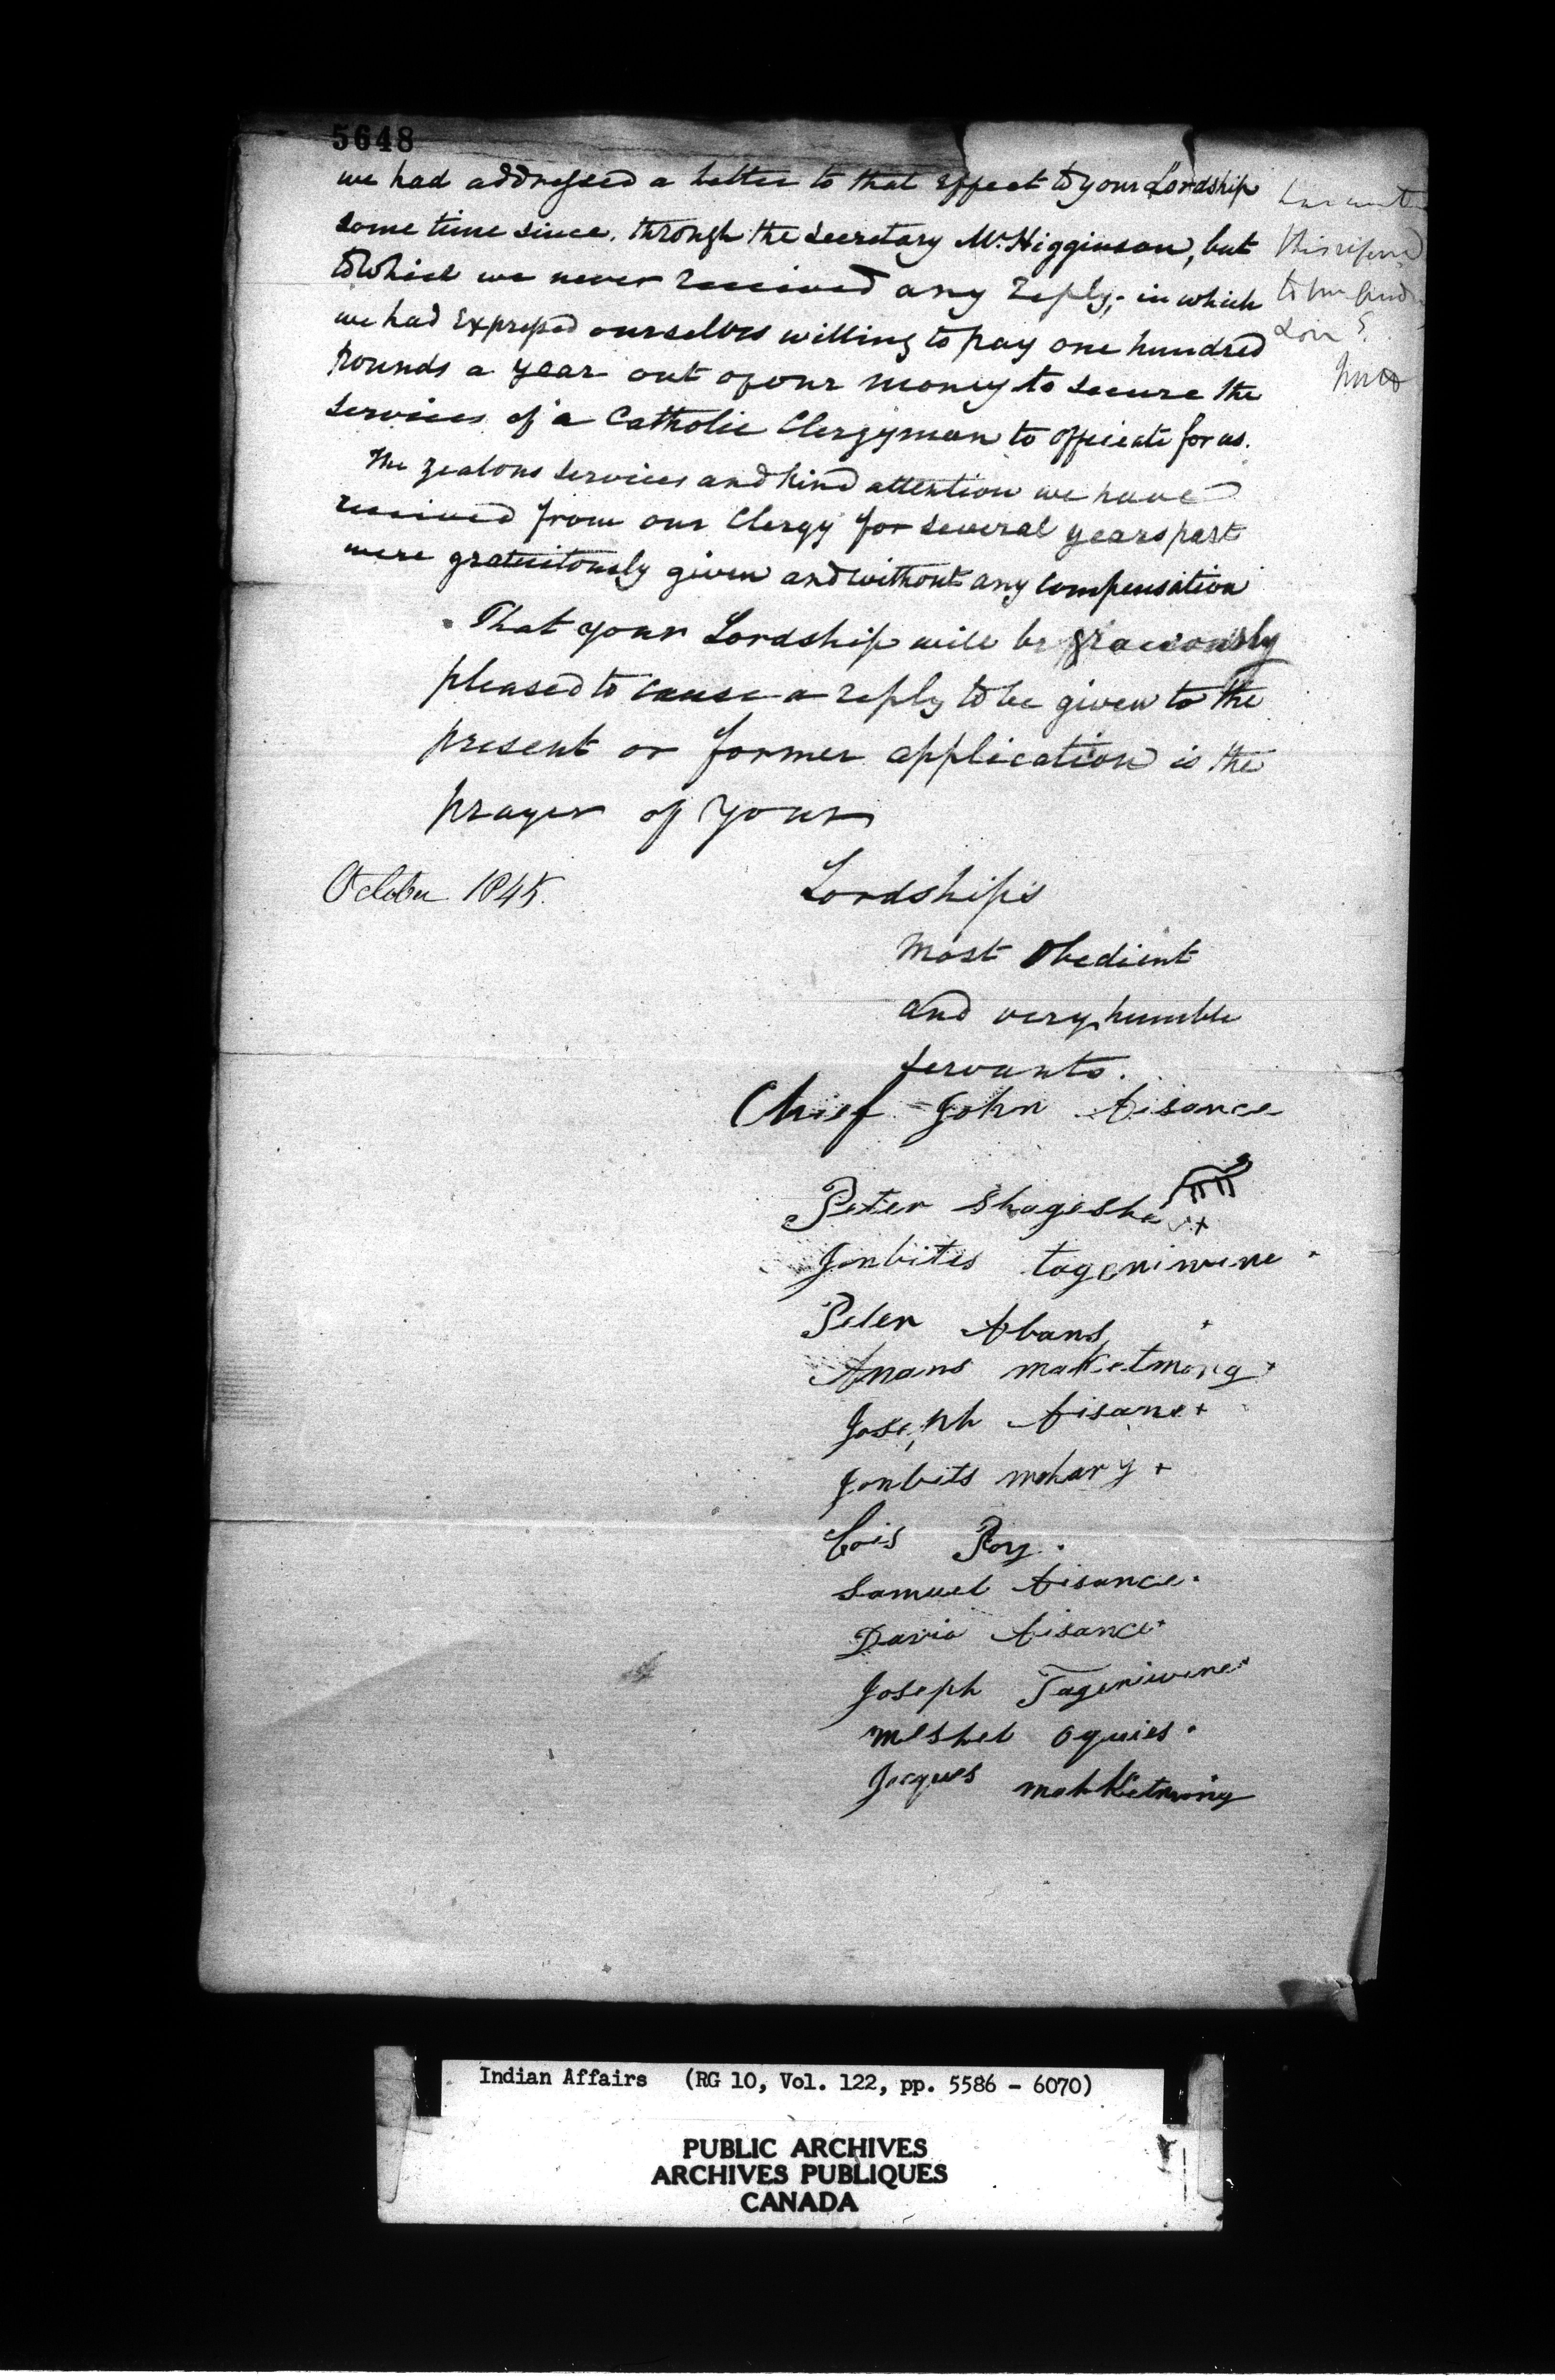 5648
we had addressed a letter to that effect to your Lordship
some time since, through the Secretary Mr. Higginson, but
to which we never received any reply; in which
we had expressed ourselves willing to pay one hundred
pounds a year out of our money to secure the
services of a Catholic Clergyman to officiate for us.
The zealous services and kind attention we have
received from our Clergy for several years past
were gratuitously given and without any compensation
That your Lordship will be graciously
pleased to cause a reply to be given to the
present or former application is the
prayer of your
October 1845.
Lordship's
Most Obedient
and very humble
servants.
Chief John Aisance
Peter Shagesha +
Jonbites tageniwene
Peter Abans +
Anans maketmong +
Joseph Aisane +
Jonbits mohary +
Cois Roy.
Samuel Aisance.
David Aisance +
Joseph Tageniwene
Meshel Oguies.
Jacques mahketmong
Indian Affairs (RG 10, Vol. 122, pp. 5586 - 6070)
PUBLIC ARCHIVES
ARCHIVES PUBLIQUES
CANADA